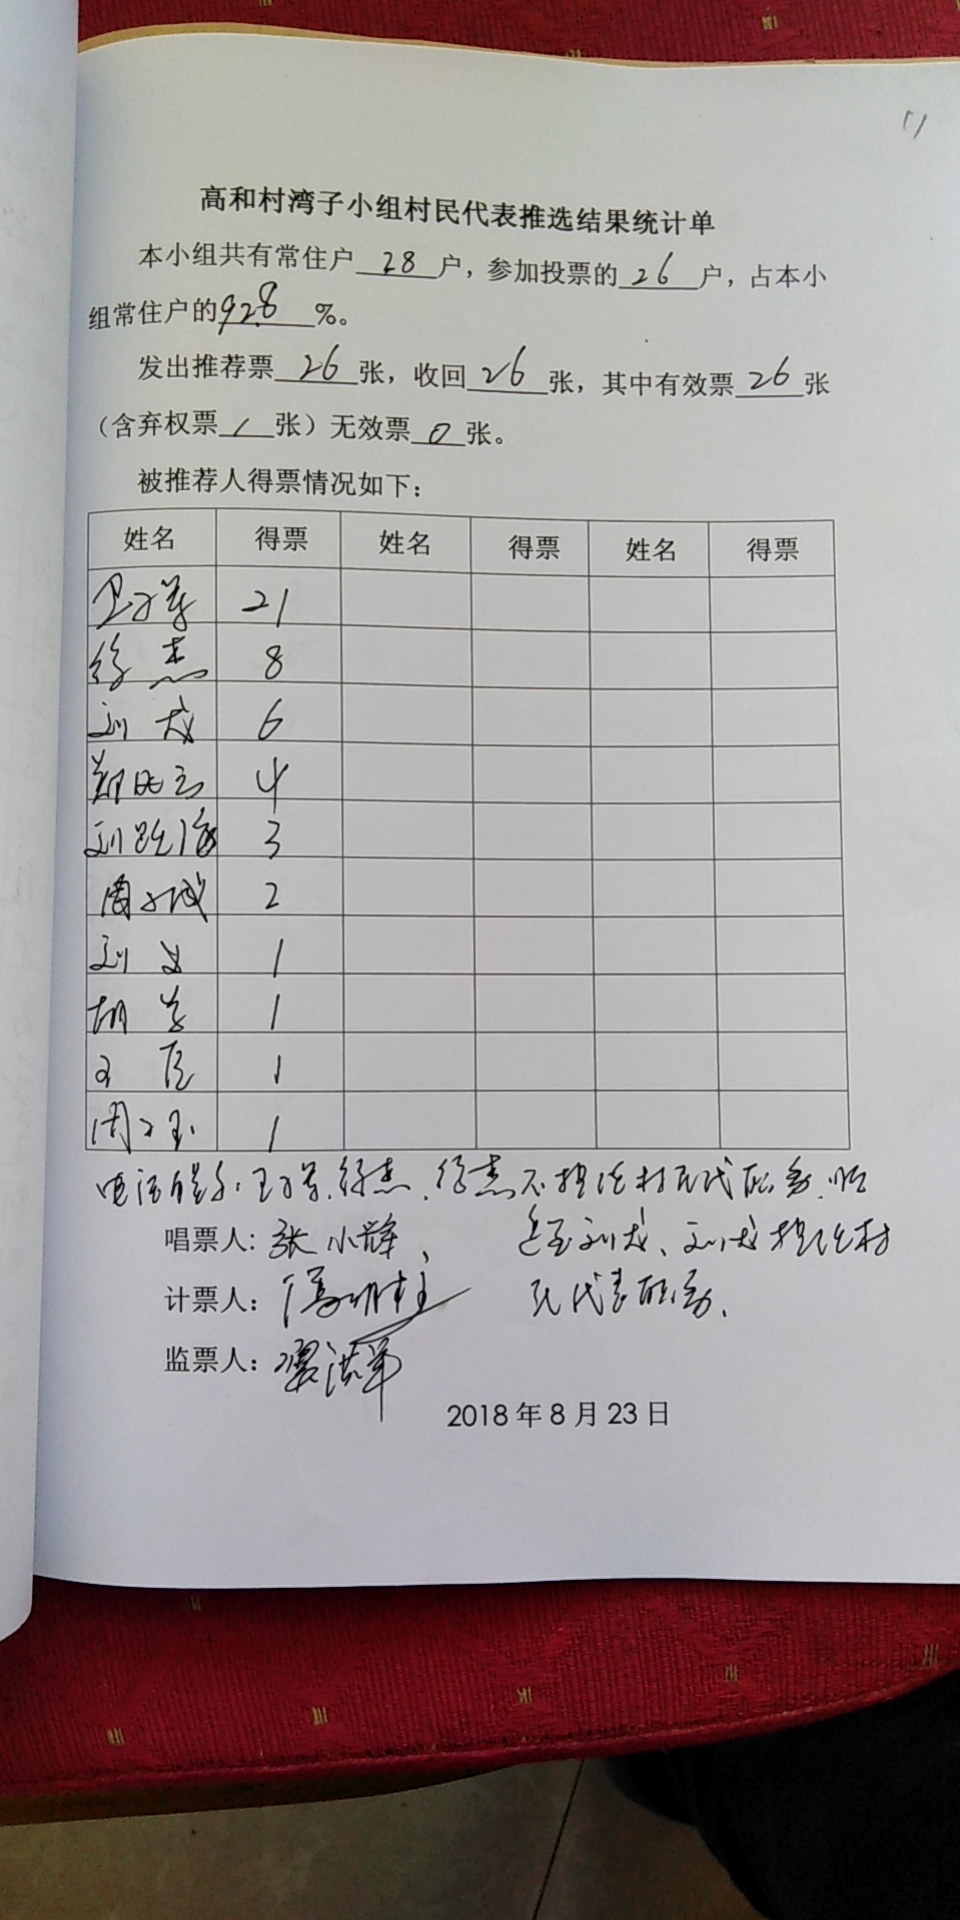 11
高和村湾子小组村民代表推选结果统计单
本小组共有常住户28户，参加投票的26户，占本小
组常住户的92.8%。
发出推荐票26张，收回26张，其中有效票26张
（含弃权票/张）无效票0张。
被推荐人得票情况如下：
姓名 得票 姓名 得票 姓名 得票
21
徐杰 8
刘成 6
4
刘 3
周 2
刘 1
胡 1
1
周 1
徐杰、徐杰不担任村民代职务、顺
唱票人：张小辉、 延至刘成、刘成担任村
计票人： 民代表职务、
监票人：
2018年8月23日